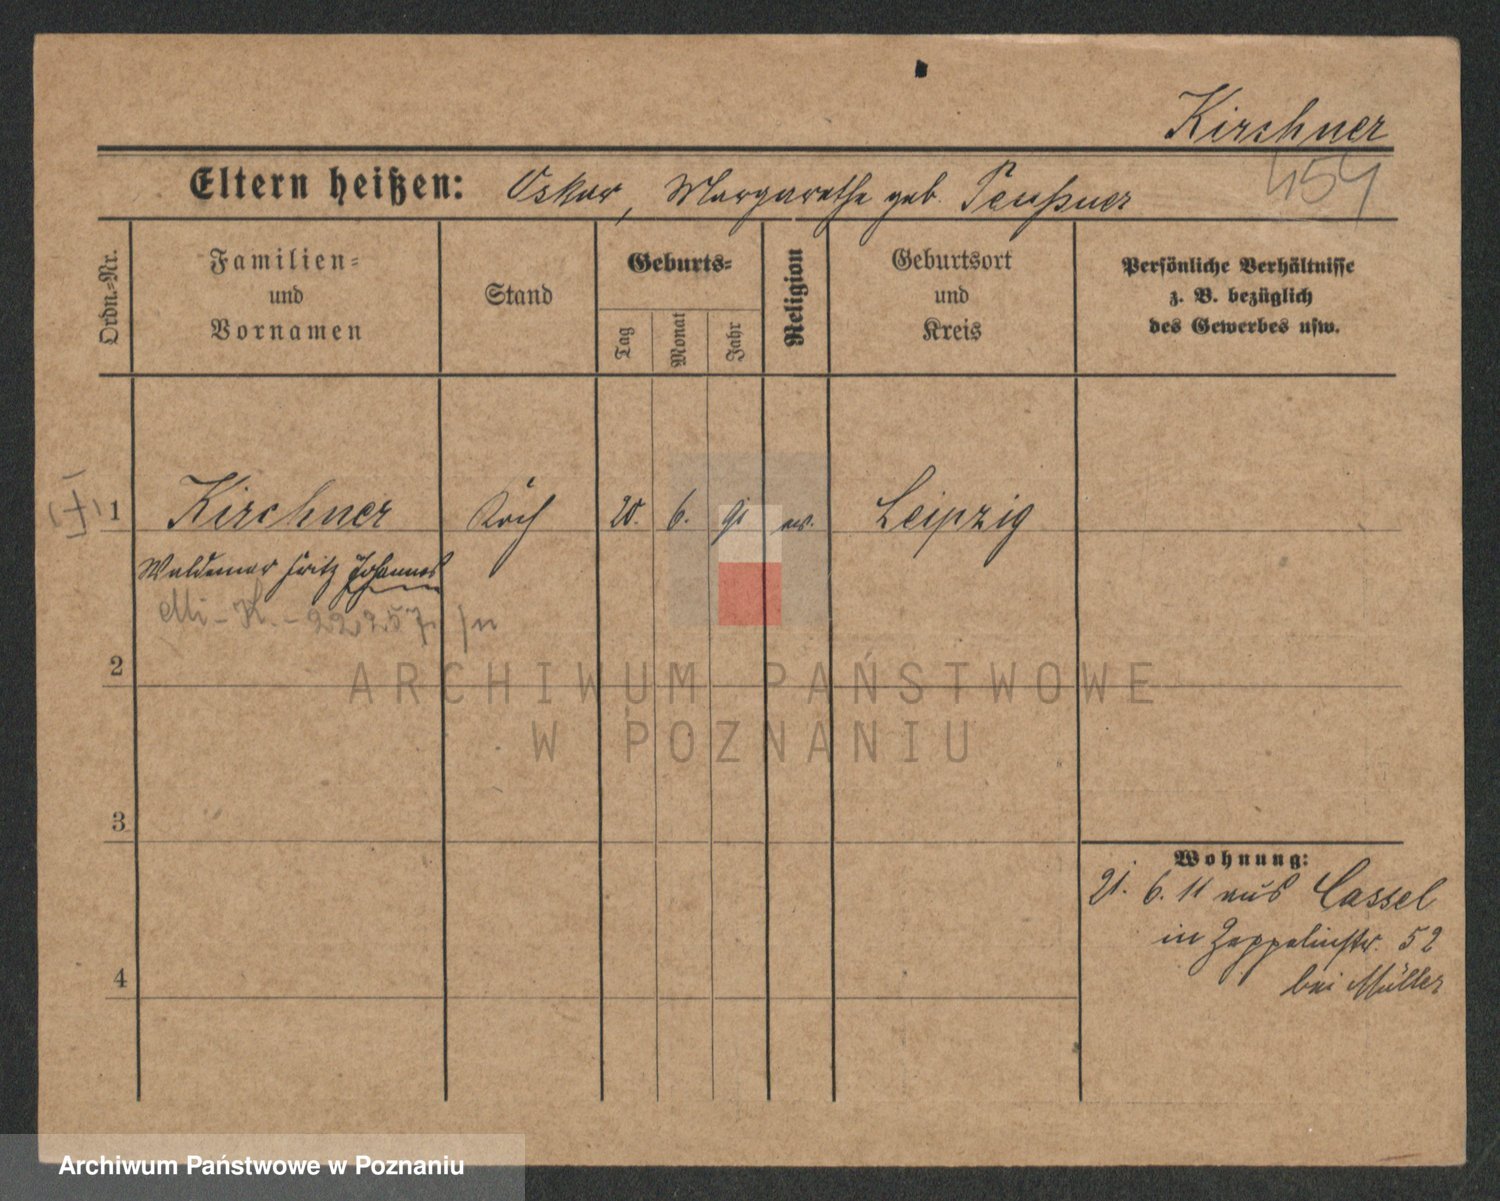 Kirchner
454
Eltern heißen: Oskar, Margarethe geb.
Ordn.-Nr.
Familien- und Vornamen
Stand
Geburts-
Tag
Monat
Jahr
Religion
Geburtsort und Kreis
Persönliche Verhältnisse z. B. bezüglich des Gewerbes usw.
1 Kirchner Koch 20. 6. 91 ev. Leipzig
Waldemar Fritz Johannes
Mi-K.-22257.
2
ARCHIWUM PAŃSTWOWE
W POZNANIU
3
Wohnung:
21. 6. 11 aus Cassel
in Zeppelinstr. 52
bei Müller
4
Archiwum Państwowe w Poznaniu